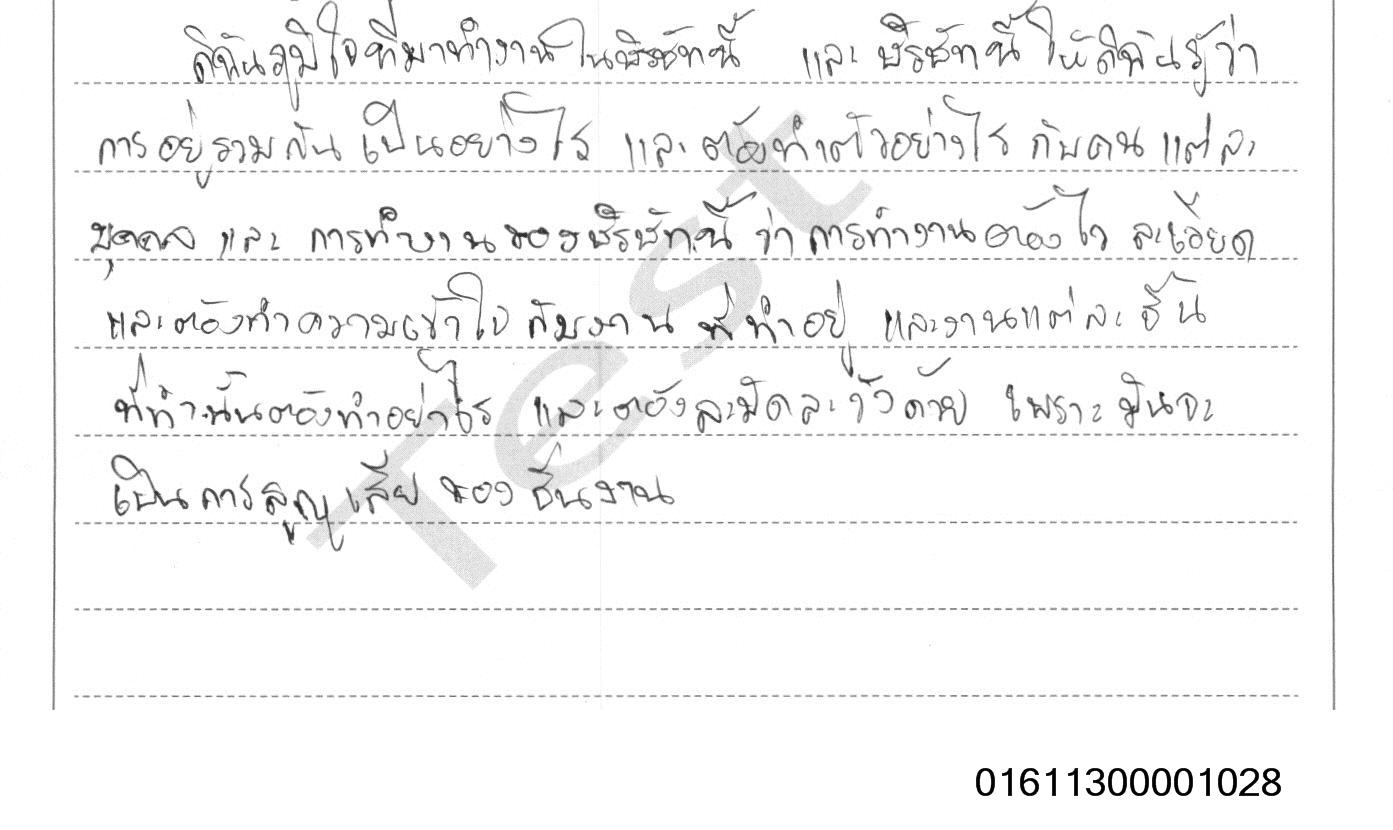 ดิฉันภูมิใจที่มาทำงานในบริษัทนี้ และ บริษัทนี้ ให้ดิฉันรู้ว่า
การอยู่รวมกัน เป็นอย่างไร และ ต้องทำตัวอย่างไร กับคน แต่ละ
บุคคล และ การทำงาน ของบริษัทนี้ ว่า การทำงานต้องใจ ละเอียด
และต้องทำความเข้าใจ กับงาน ที่ทำอยู่ และงานแต่ละชิ้น
ที่ทำนั้นต้องทำอย่างไร และต้องละมัดละวังด้วย เพราะ มันจะ
เป็นการสูญเสีย ของ ชิ้นงาน
Test
01611300001028